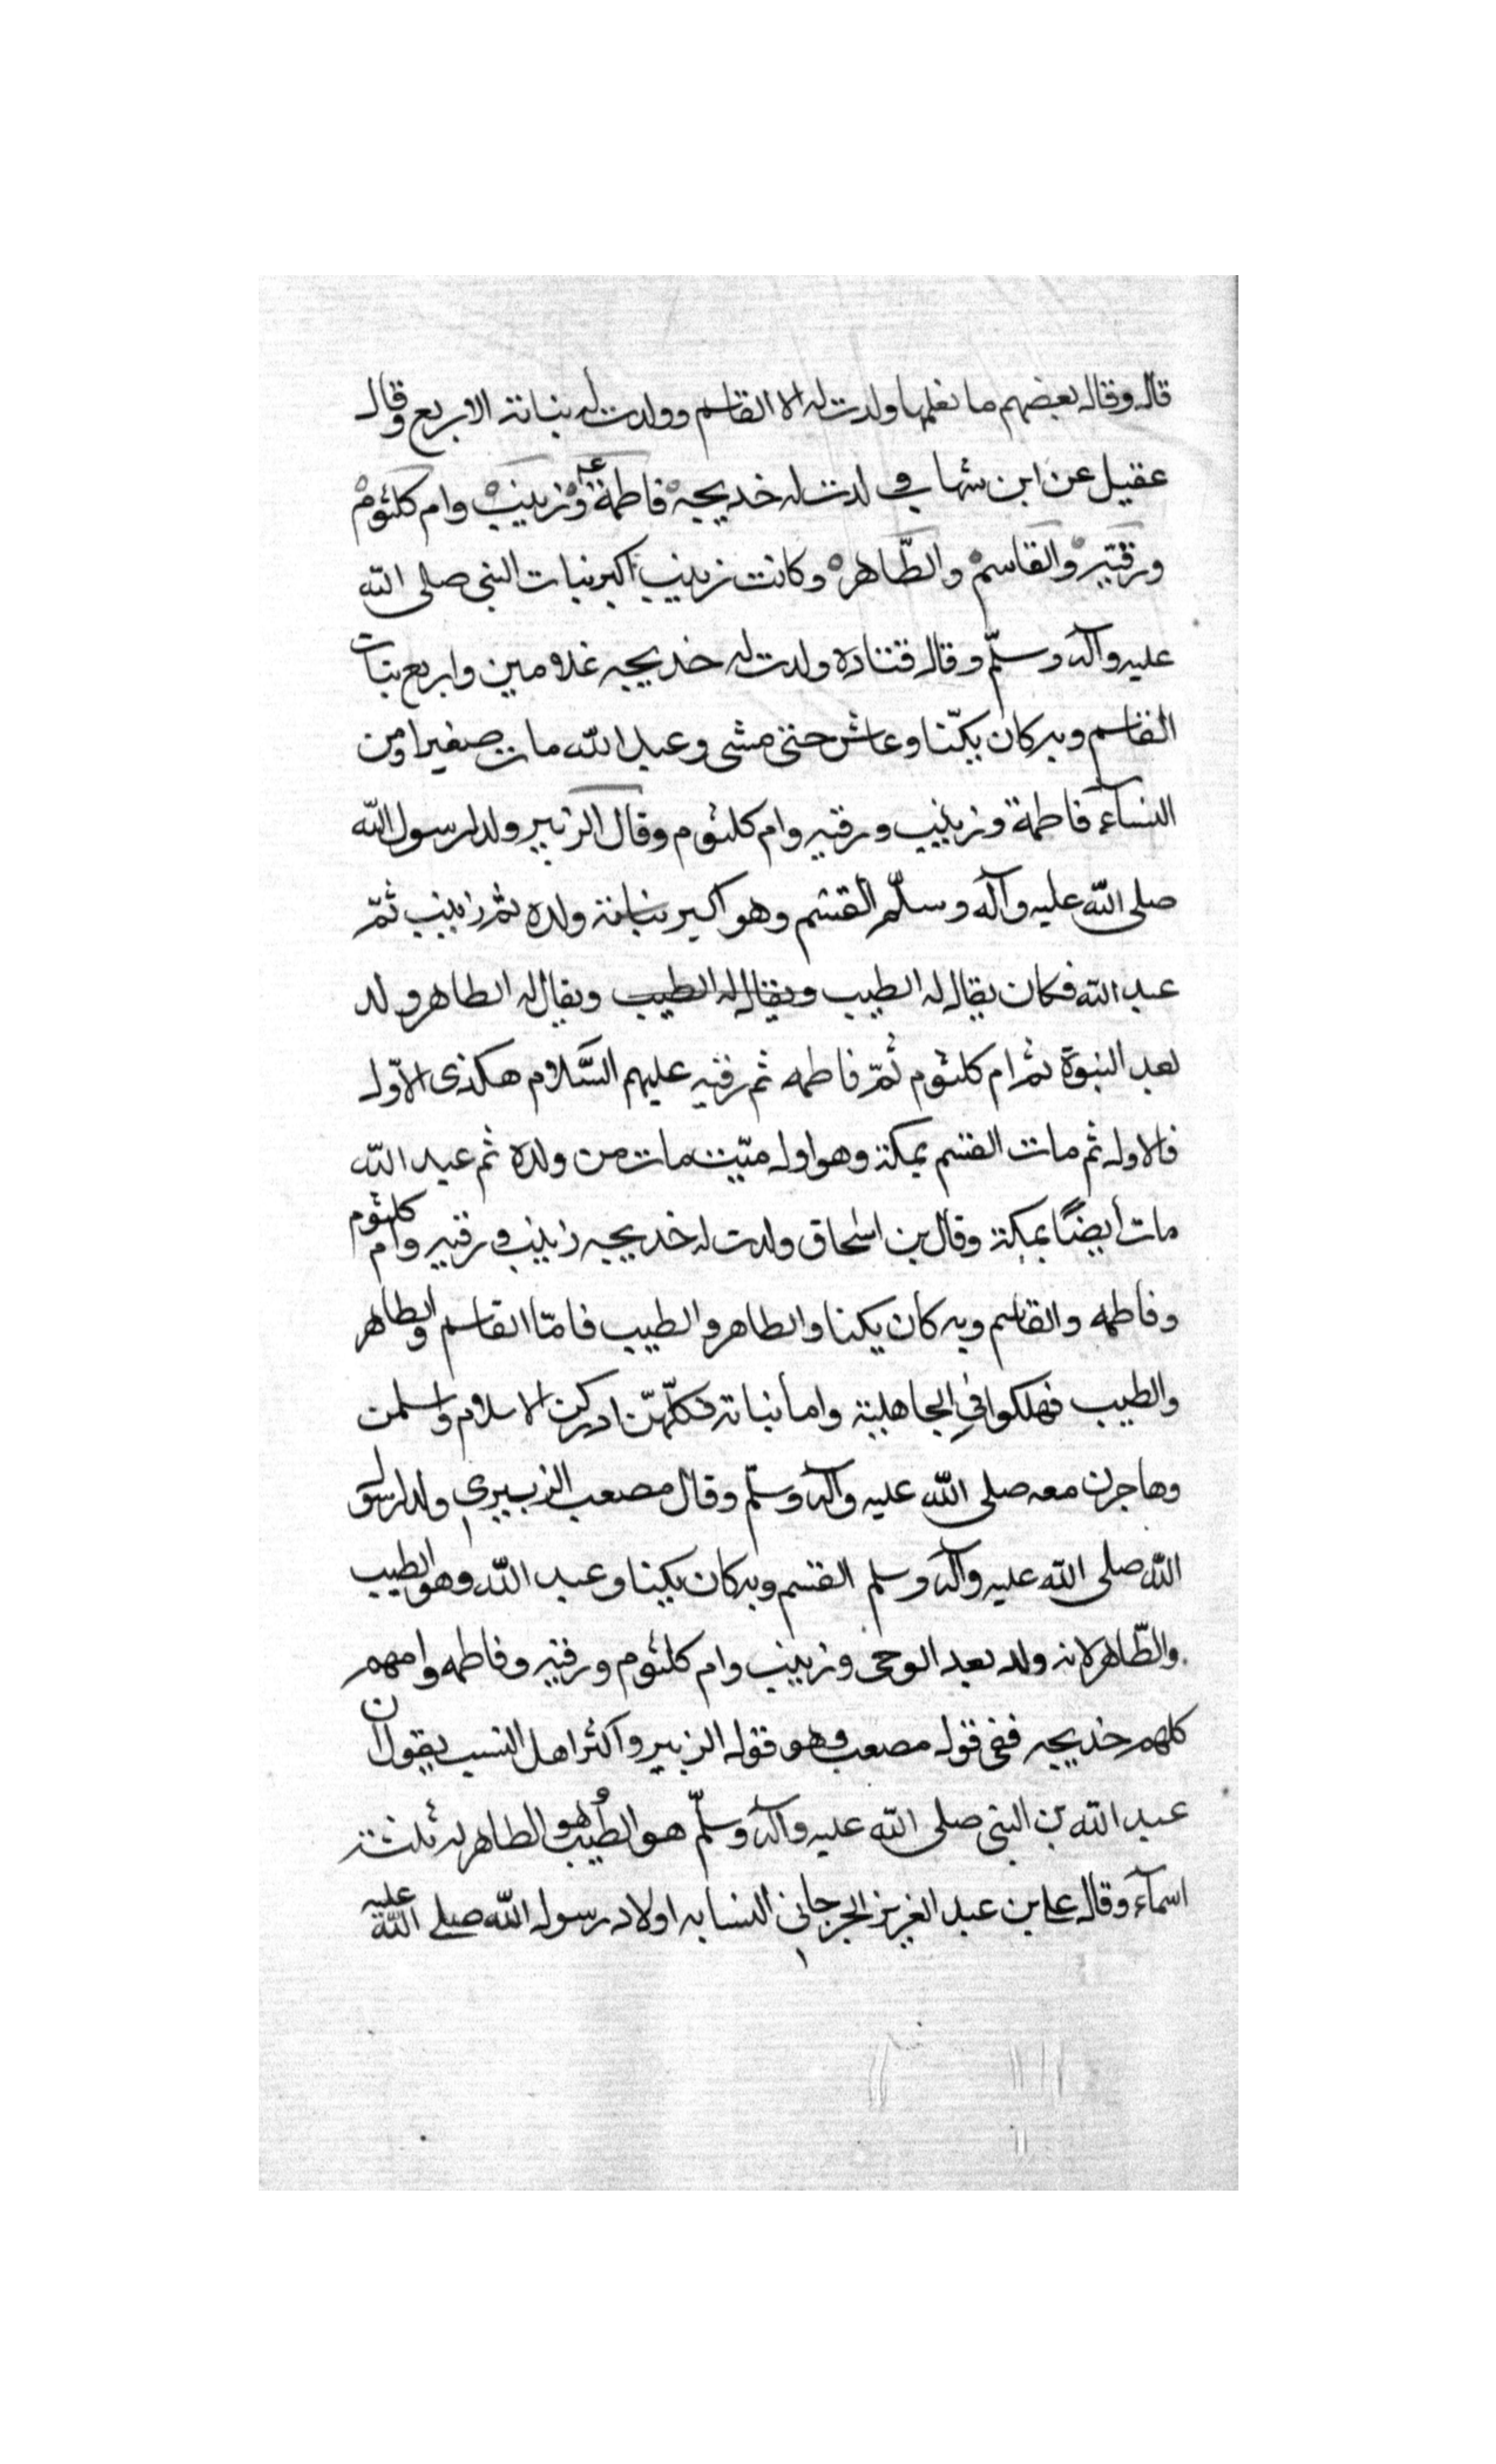 قال وقال بعضهم ما نعلمها ولدت له الا القاسم وولدت له بناته الاربع وقال
عقيل عن ابن شهاب ولدت له خديجه فاطمة وزينب وام كلثوم
ورقيه والقاسم والطّاهر وكانت زينب اكبر بنات النبى صلى الله
عليه وآله وسلّم وقال قتاده ولدت له خديجه غلامين واربع بنات
القاسم وبه كان يكنّا وعاش حتى مشى وعبد الله مات صغيرا ومن
النسآء فاطمة وزينب ورقيه وام كلثوم وقال الزبير ولد لرسول الله
صلى الله عليه وآله وسلّم القسم وهو اكبر بناته ولده ثم زينب ثمّ
عبد الله فكان يقال له الطيب ويقال له الطيب ويقال له الطاهر ولد
بعد النبوة ثم ام كلثوم ثمّ فاطمه ثم رقيه عليهم السّلام هكذى الاوّل
فالاول ثم مات القسم بمكة وهو اول ميّت مات من ولده ثم عبد الله
مات أيضًا بمكة وقال بن اسحاق ولدت له خديجه زينب ورقيه وام كلثوم
وفاطمه والقاسم وبه كان يكنا والطاهر والطيب فامّا القاسم والطاهر
والطيب فهلكوا في الجاهلية واما بناته فكلّهنّ ادركن الاسلام واسلمن
وهاجرن معه صلى الله عليه وآله وسلّم وقال مصعب الزبيري ولد لرسول
الله صلى الله عليه وآله وسلم القسم وبه كان يكنا وعبد الله وهو الطيب
والطّاهر لانه ولد بعد الوحى وزينب وام كلثوم ورقيه وفاطمه وامهم
كلهم خديجه ففى قول مصعب وهو قول الزبير واكثر اهل النسب يقول ان
عبد الله بن النبى صلى الله عليه وآله وسلّم هو الطيب وهو الطاهر له ثلثة
اسمآء وقال على بن عبد العزيز الجرجانى النسابه اولاد رسول الله صلى الله عليه